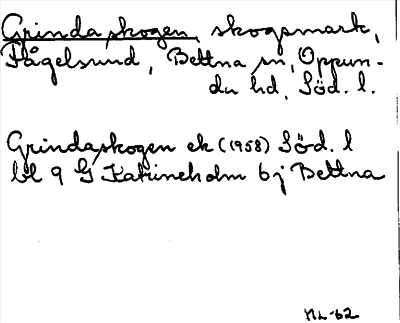 Grindaskogen, skogsmark,
Fågelsund, Bettna sn, Oppun-
da hd, Söd. l.
Grindaskogen ek (1958) Söd. l
bl 9 G Katrineholm 6j Bettna
NL-62